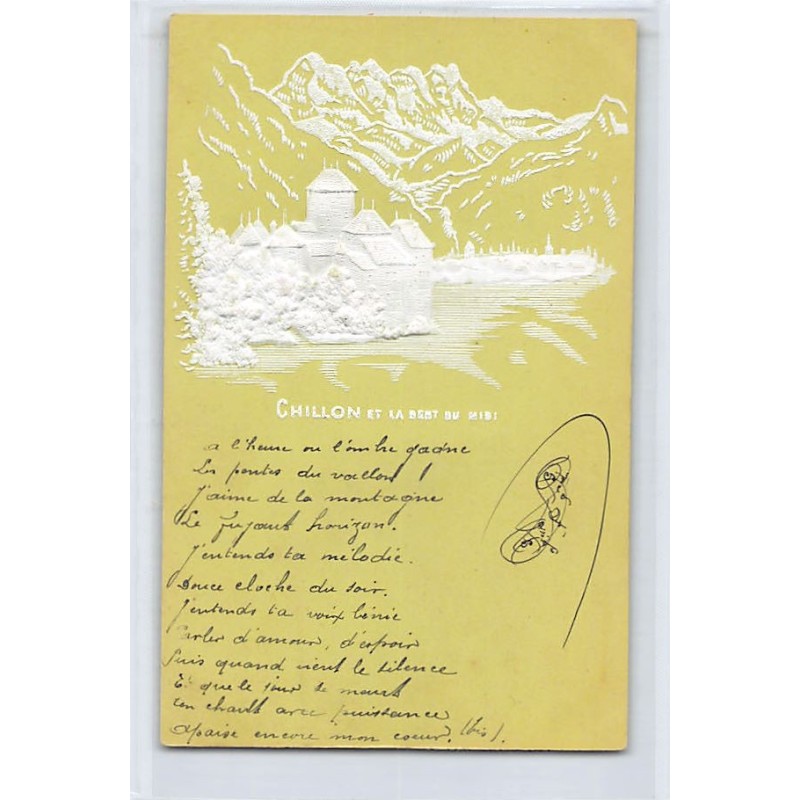 CHILLON ET LA DENT DU MIDI
a l'heure ou l'ombre gagne
Les pentes du vallon !
J'aime de la montagne
Le fuyant horizon.
J'entends ta mélodie.
Douce cloche du soir.
J'entends ta voix bénie
Parler d'amour, d'espoir
Puis quand vient le silence
Et que le jour se meurt
ton chant avec puissance
apaise encore mon coeur. (bis).